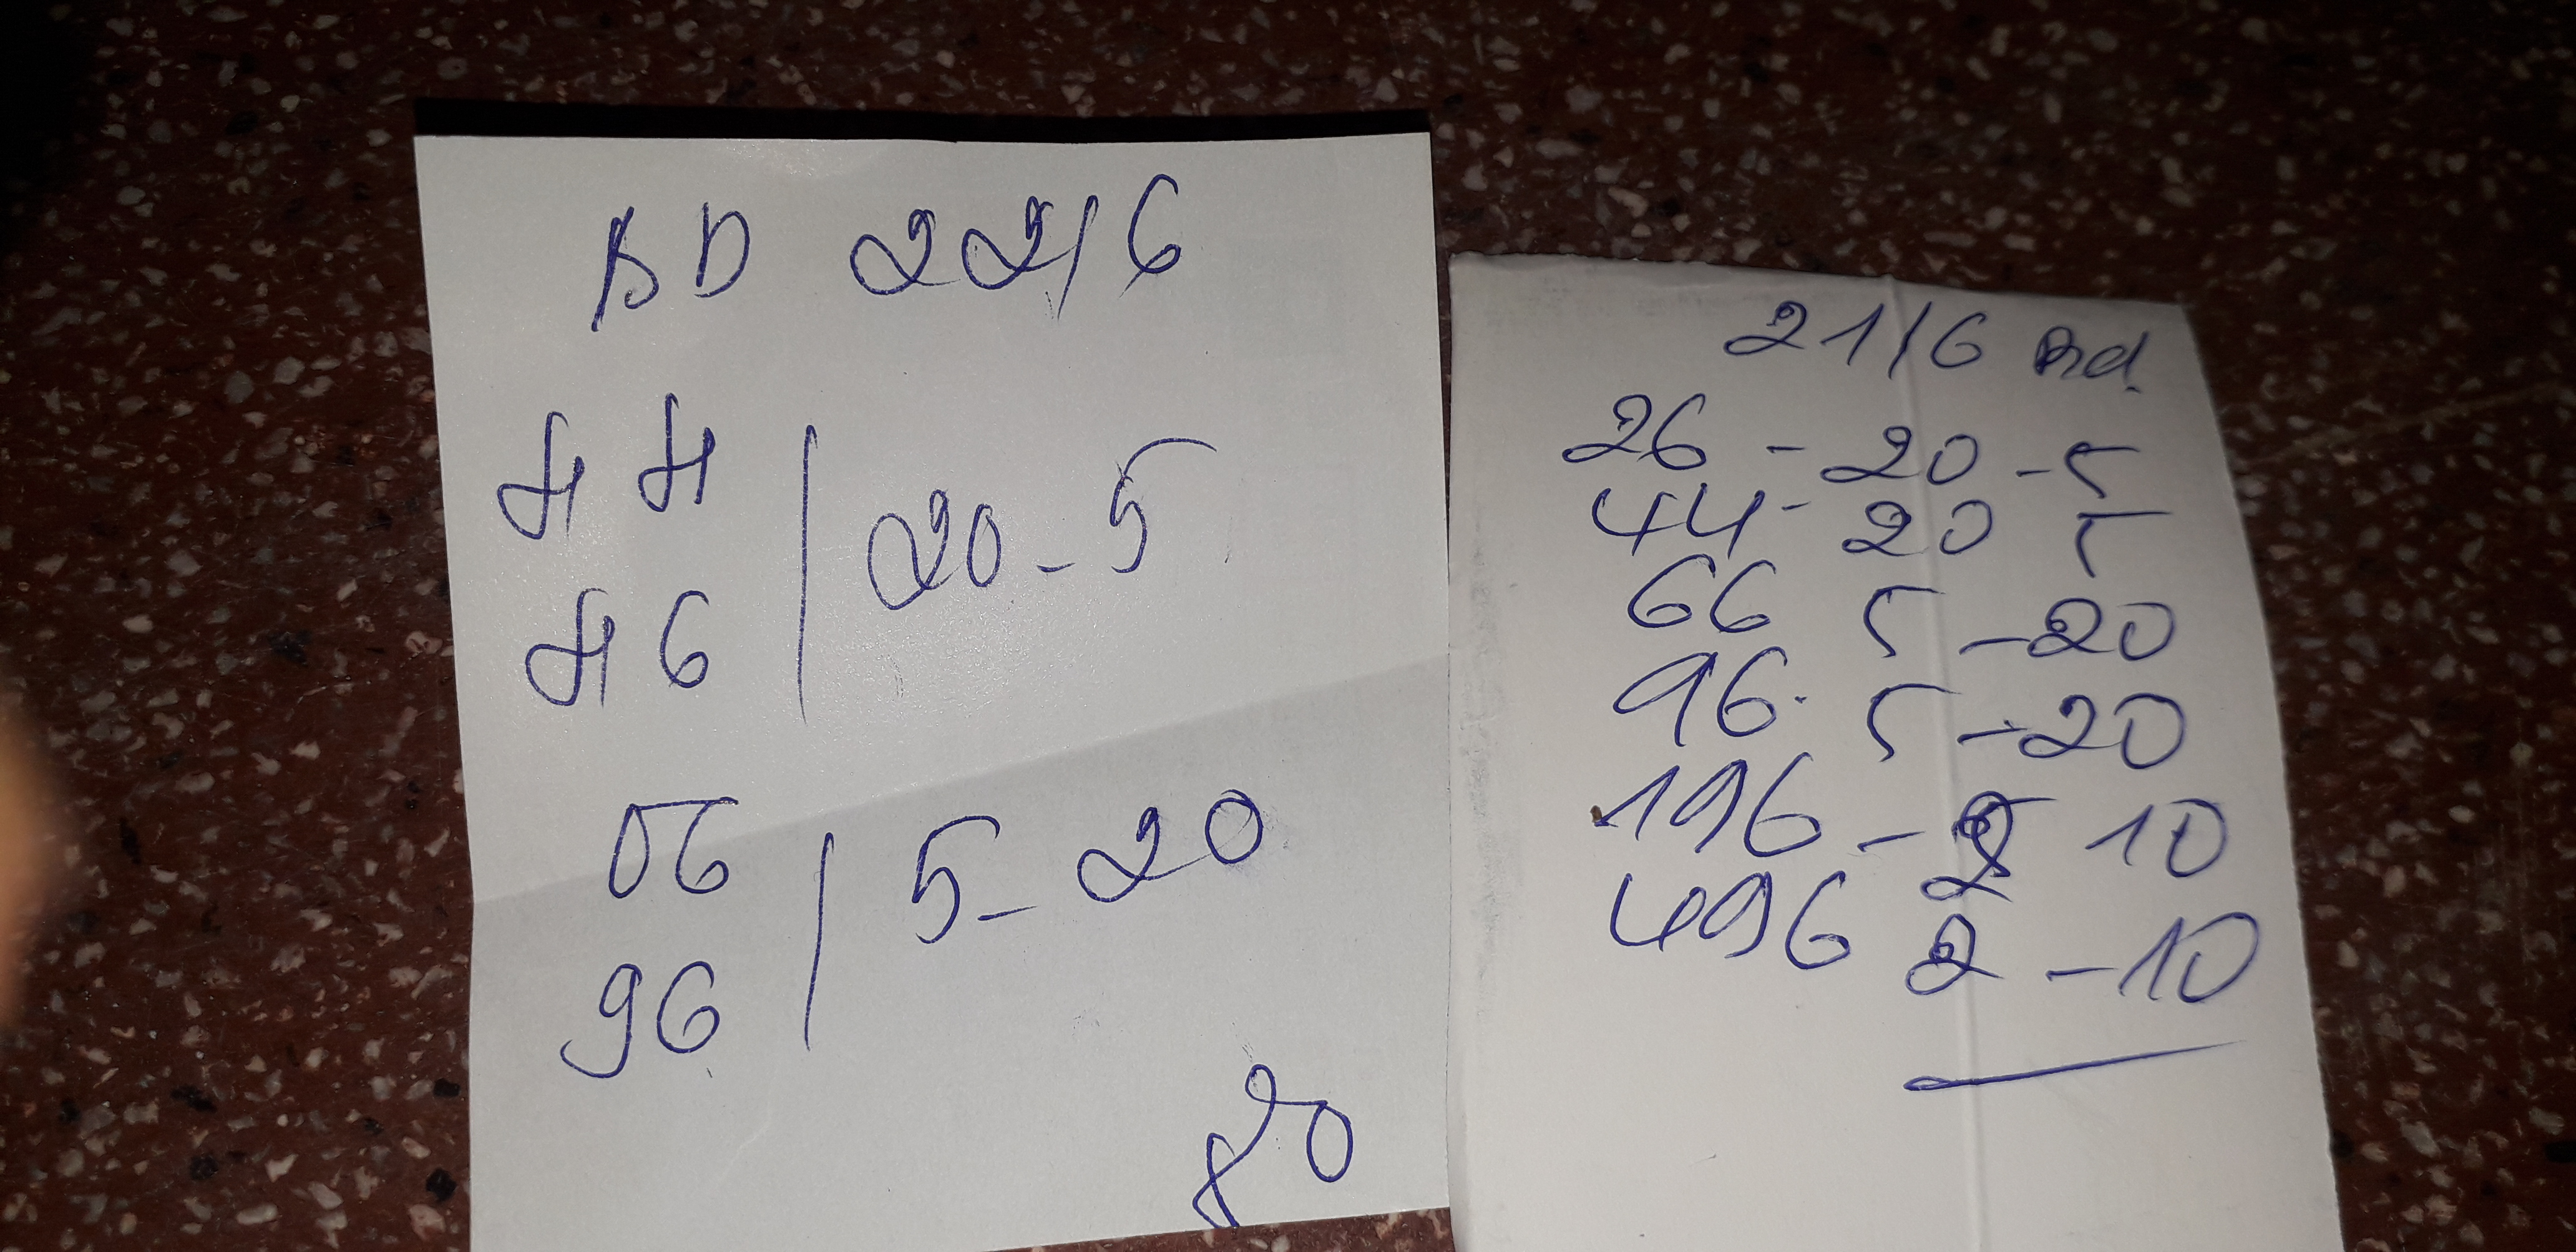 BD 22/6
44
20-5
46
06
5-20
96
80
21/6 Bd.
26 - 20 - 5
44 - 20 5
66 5 - 20
96. 5 - 20
196 - 2 10
496 2 - 10